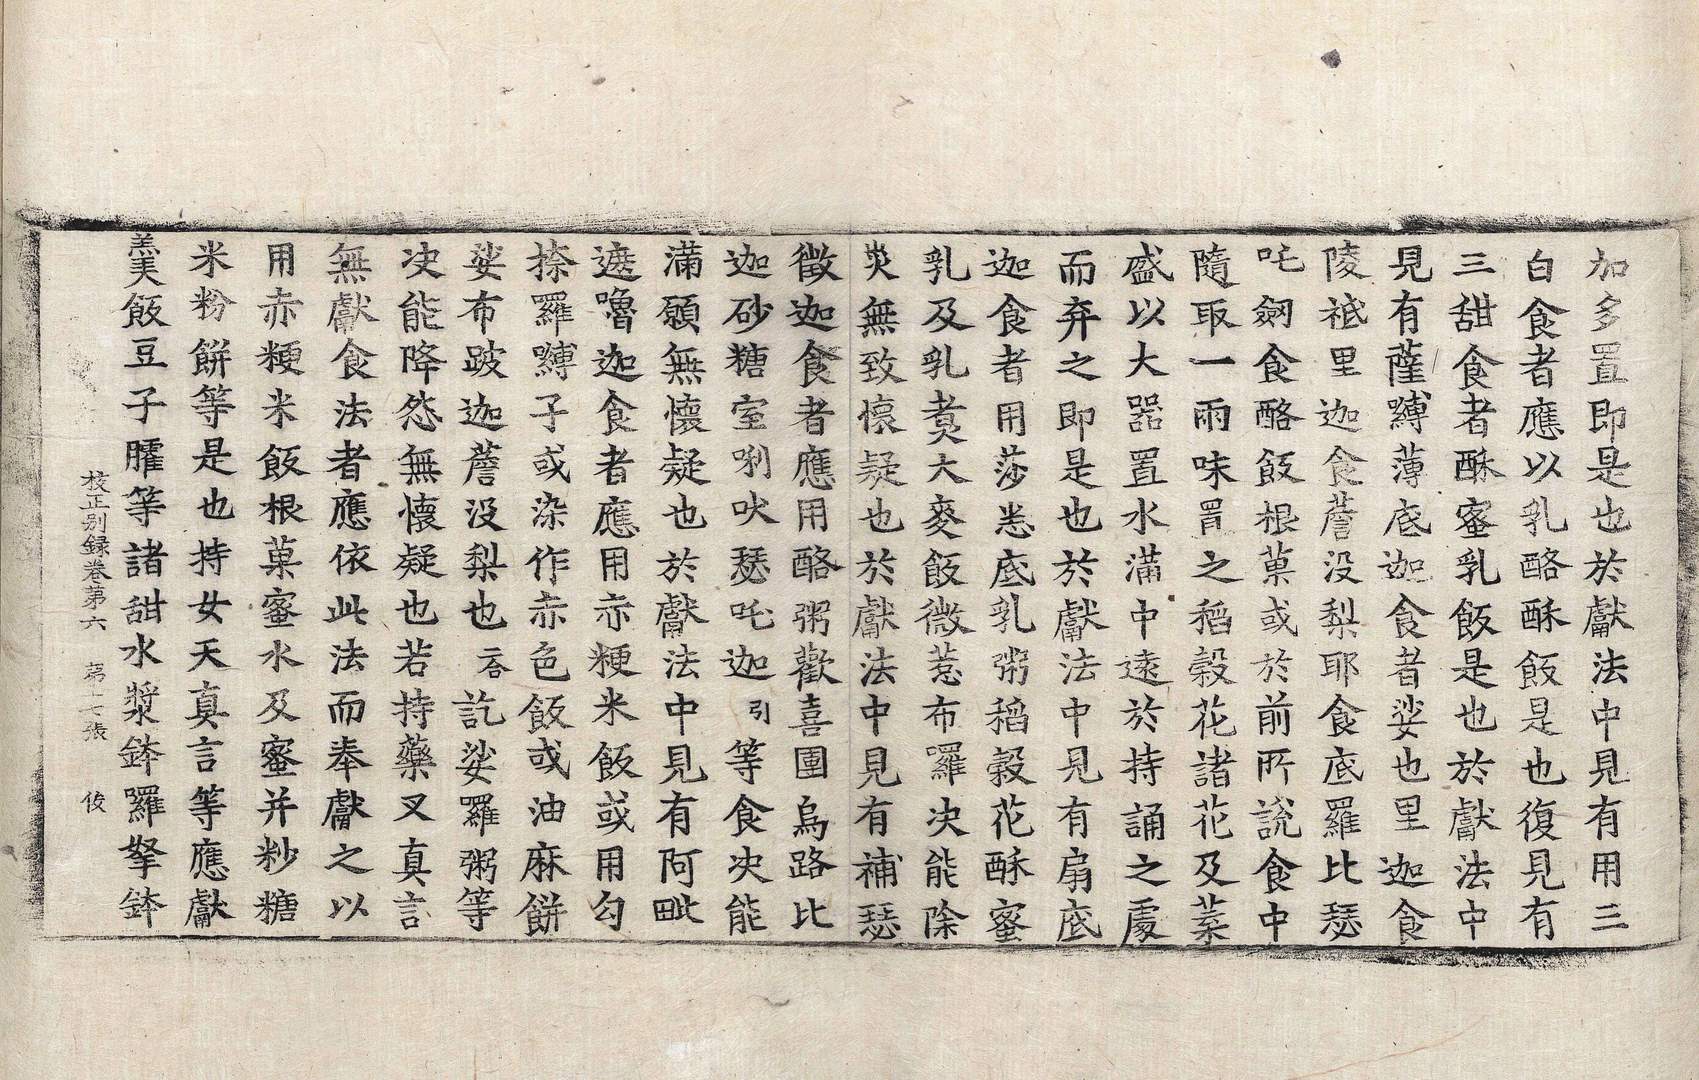 加多置即是也於獻法中見有用三
白食者應以乳酪酥飯是也復見有
三甜食者酥蜜乳飯是也於獻法中
見有薩嚩薄底迦食者娑也里迦食
陵祇里迦食薝没梨耶食底羅比瑟
吒劒食酪飯根菓或於前所說食中
隨取一兩味置之稻穀花諸花及葉
盛以大器置水滿中遠於持誦之處
而弃之即是也於獻法中見有扇底
迦食者用莎悉底乳粥稻穀花酥蜜
乳及乳煑大麥飯微惹布囉决能除
災無致懷疑也於獻法中見有補瑟
徵迦食者應用酪粥歡喜團烏路比
迦砂糖室唎吠瑟吒迦引等食决能
滿願無懷疑也於獻法中見有阿毗
遮嚕迦食者應用赤粳米飯或用勾
捺羅嚩子或染作赤色飯或油麻餅
娑布跛迦薝没梨也二合訖娑羅粥等
决能降怨無懷疑也若持藥叉真言
無獻食法者應依此法而奉獻之以
用赤粳米飯根菓蜜水及蜜并粆糖
米粉餅等是也持女天真言等應獻
羹飯豆子臛等諸甜水漿鉢羅拏鉢
校正別録卷第六 第十七張 俊